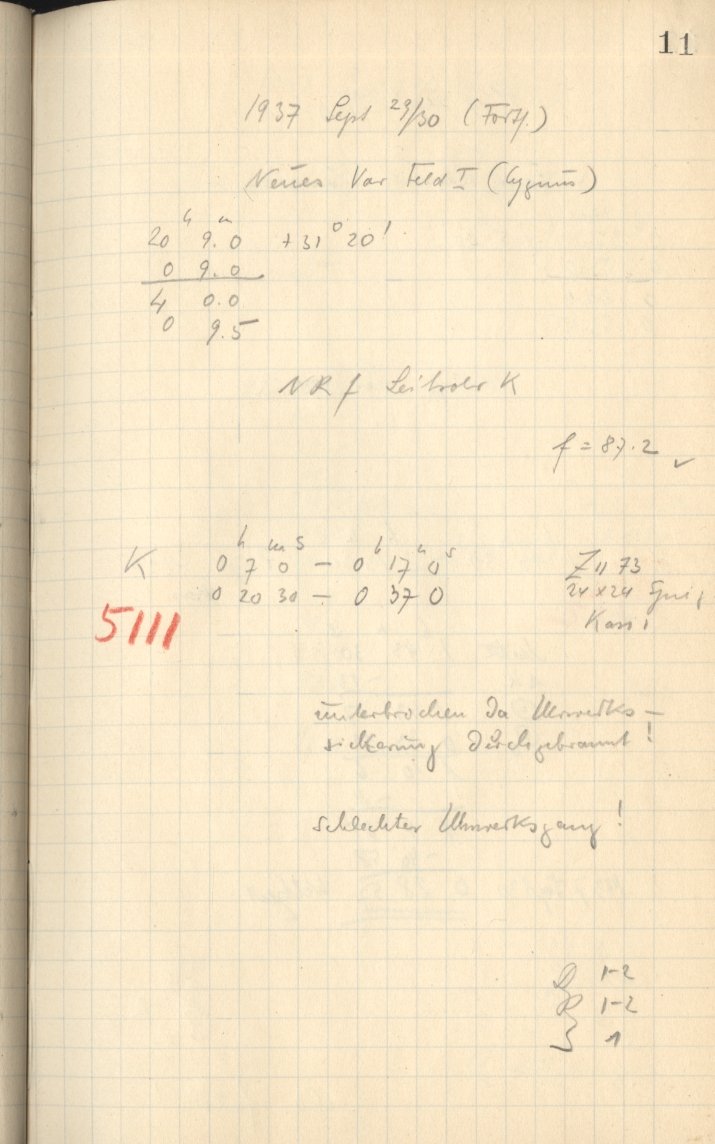 11
1937 Sept 29/30 (Forts.)
Neues Var Feld I (Cygnus)
20ʰ 9.0ᵐ +31° 20'
0 9.0
4 0.0
0 9.5
NR f Leitrohr K
f = 87.2 ✓
K 0ʰ 7ᵐ 0ˢ – 0ʰ 17ᵐ 0ˢ Zu 73
0 20 30 – 0 37 0 24×24
5111 Kass 1
unterbrochen da Uhrwerks–
sicherung durchgebrannt!
schlechter Uhrwerksgang!
1–2
R 1–2
1